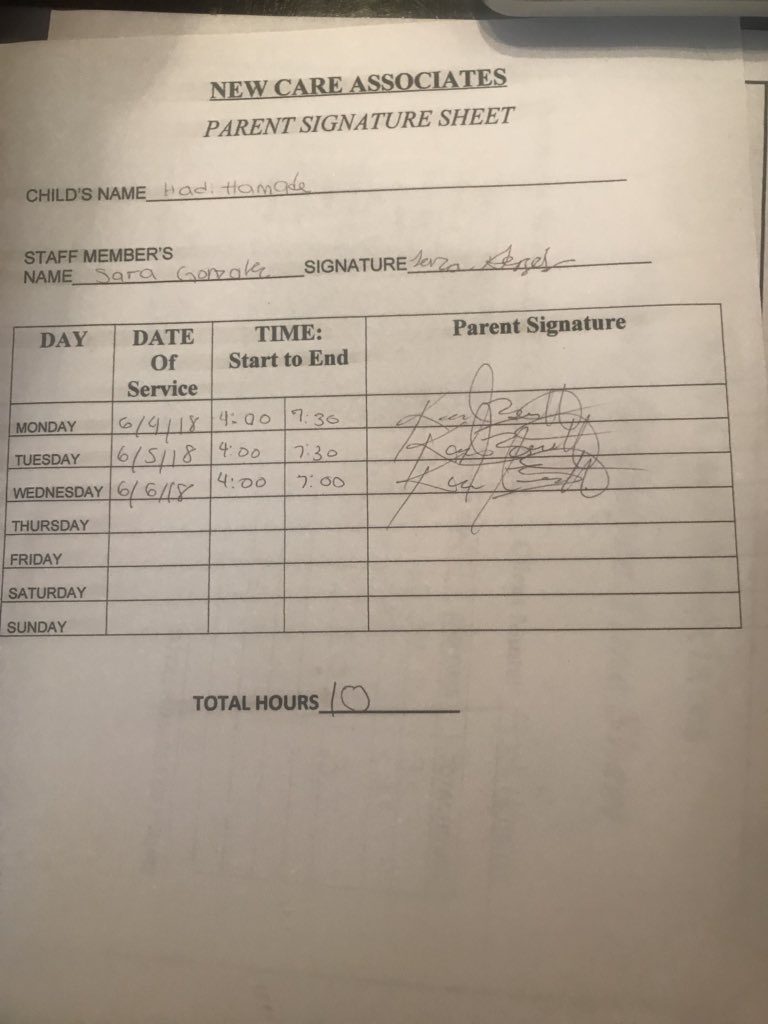 NEW CARE ASSOCIATES
PARENT SIGNATURE SHEET
CHILD'S NAME Hadi Hamade
STAFF MEMBER'S
NAME Sara Gonzalez SIGNATURE
DAY DATE Of Service TIME: Start to End Parent Signature
MONDAY 6/4/18 4:00 7:30
TUESDAY 6/5/18 4:00 7:30
WEDNESDAY 6/6/18 4:00 7:00
THURSDAY
FRIDAY
SATURDAY
SUNDAY
TOTAL HOURS 10